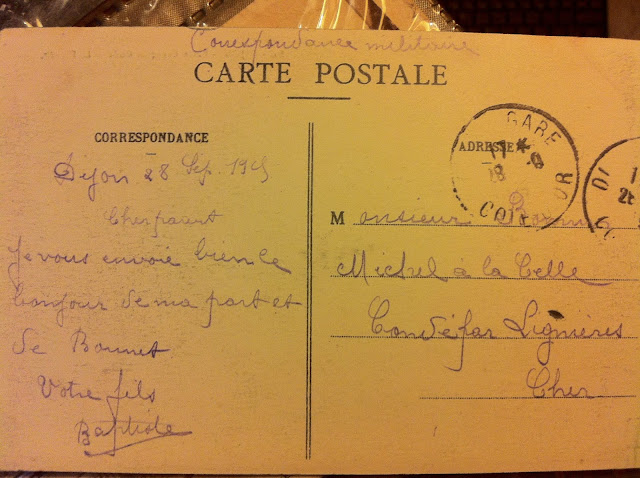 Correspondance militaire
CARTE POSTALE
CORRESPONDANCE
Dijon 28 Sep. 1915
Cher parent
Je vous envoie bien le
bonjour de ma part et
de Bonnet
Votre fils
Baptiste
ADRESSE
GARE
17 *
28
COTE OR
DI
Monsieur
Michel à la Celle
Condé par Lignières
Cher